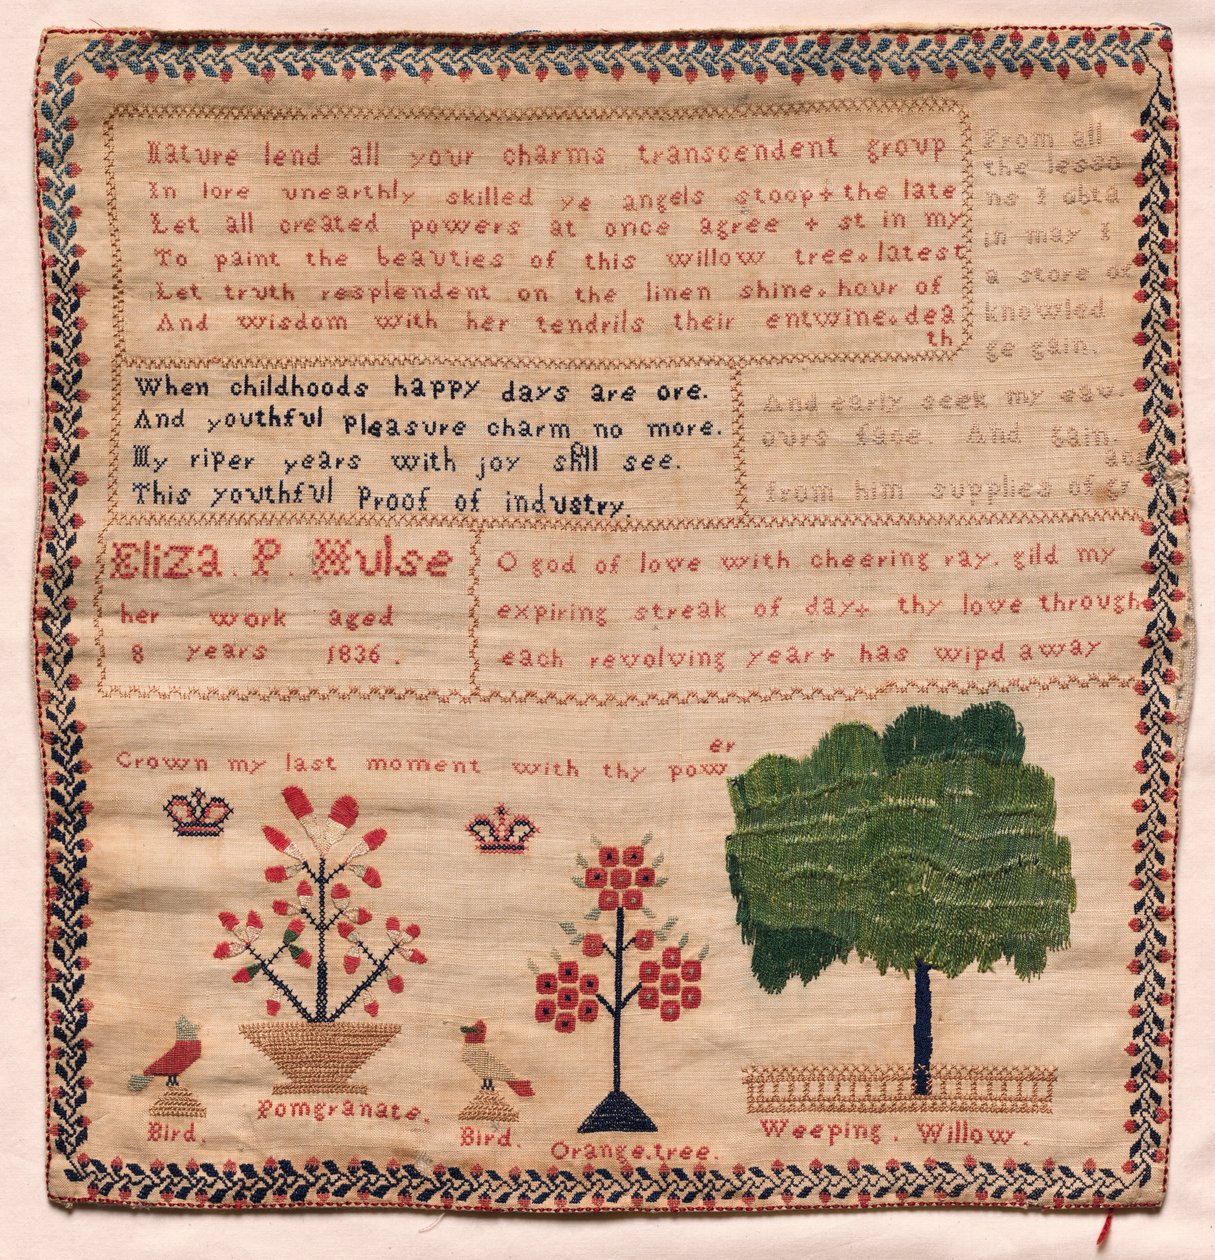 Nature lend all your charms transcendent group
In lore unearthly skilled ye angels stoop + the late
Let all created powers at once agree + st in my
To paint the beauties of this willow tree. latest
Let truth resplendent on the linen shine. hour of
And wisdom with her tendrils their entwine. dea
th
From all
the lesso
ns I obta
in may I
a store of
knowled
ge gain.
When childhoods happy days are ore.
And youthful pleasure charm no more.
My riper years with joy shll see.
This youthful Proof of industry.
And early seek my sav.
ours face And gain.
ace
from him supplies of gr
Eliza. P. Hulse
her work aged
8 years 1836.
O god of love with cheering ray. gild my
expiring streak of day+ thy love through
each revolving year+ has wipd away
er
Crown my last moment with thy pow
Pomgranate.
Bird.
Bird.
Orange.tree.
Weeping. Willow.